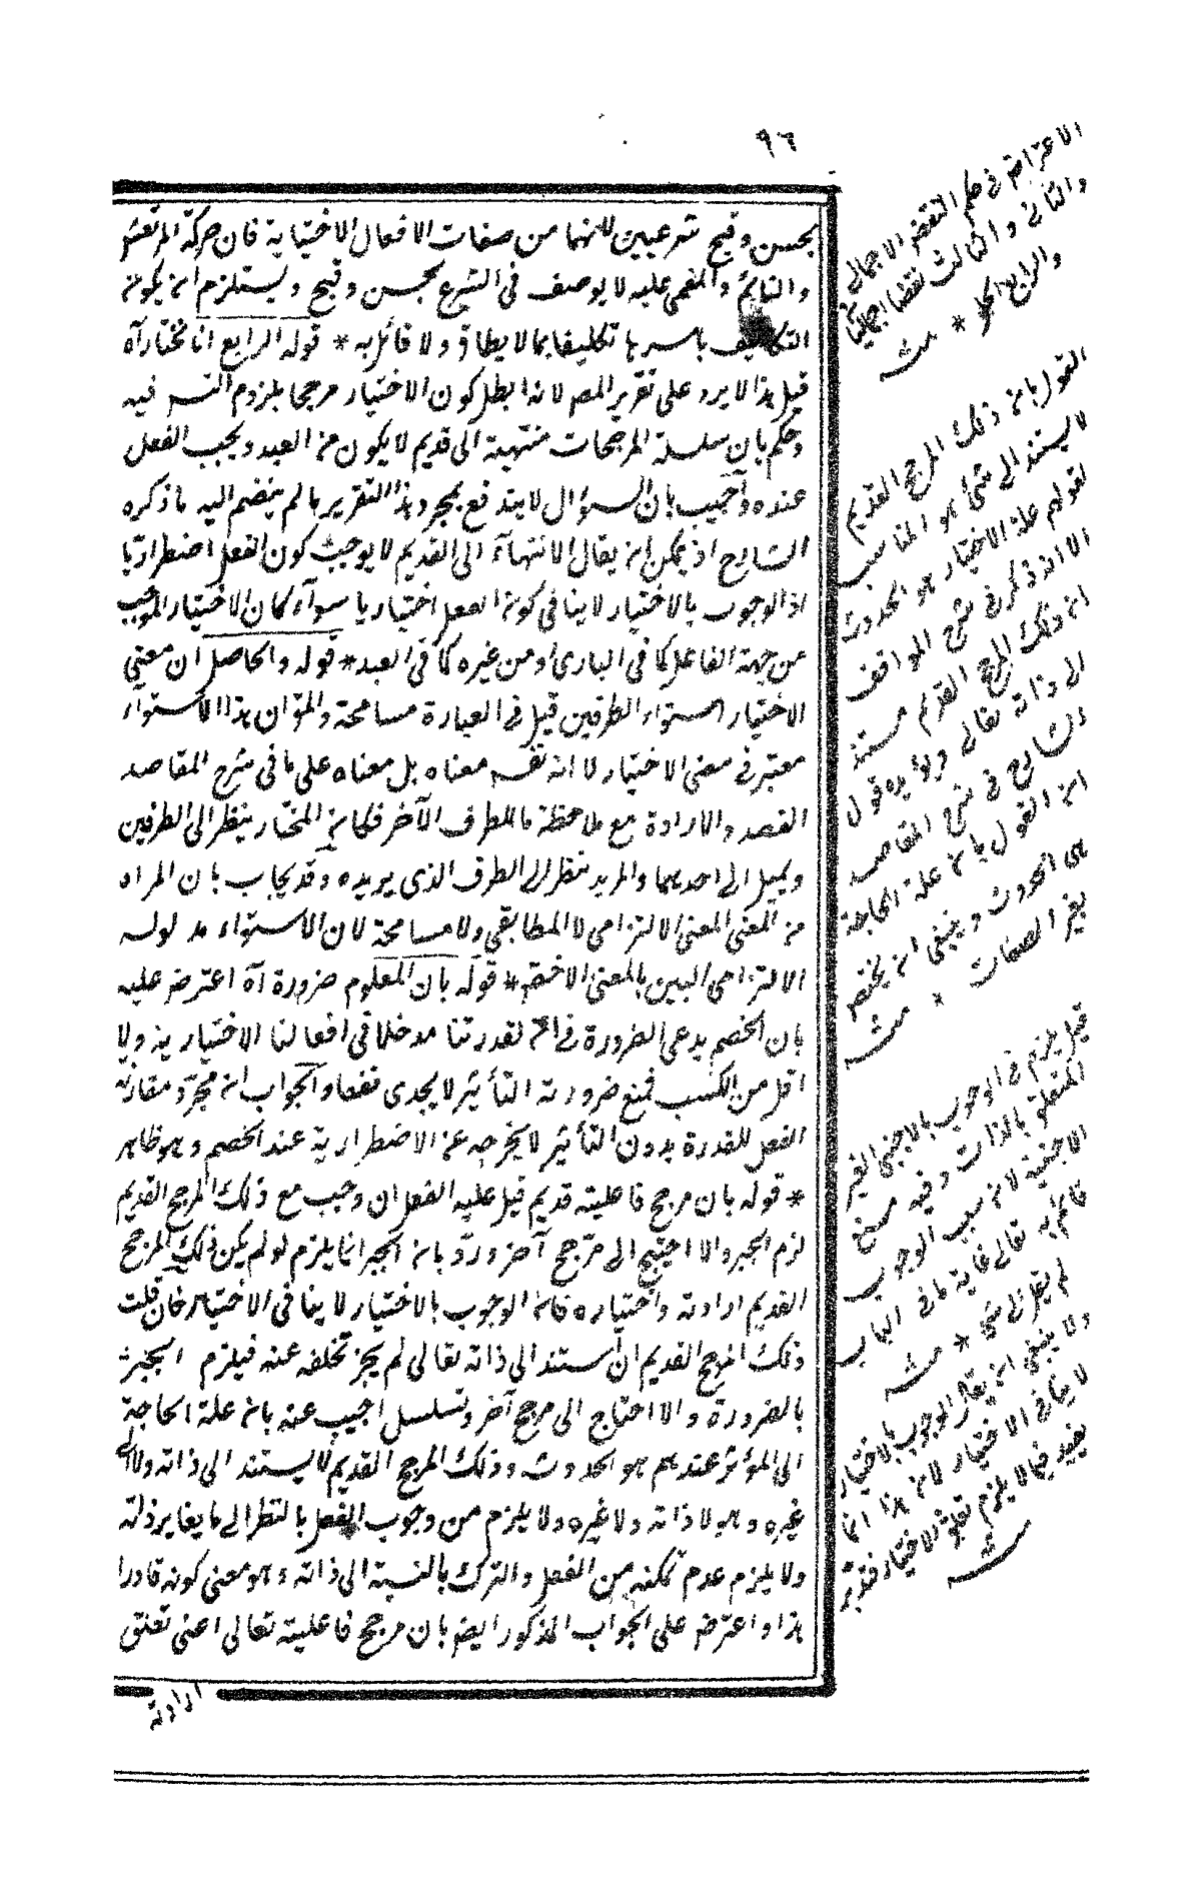 ٩٦
بحسن وقبح شرعيين لكنهما من صفات الافعال الاختيارية فان حركة المرتعش
والنائم والمغمى عليه لا يوصف فى الشرع بحسن وقبح ويستلزم ان يكون
التكاليف باسرها تكليفا بما لا يطاق ولا قائل به * قوله الرابع انا نختار آه
قيل هذا لا يرد على تقرير المص لانه ابطل كون الاختيار مرجحا بلزوم التس فيه
وحكم بان سلسلة المرجحات منتهية الى قديم لا يكون من العبد ويجب الفعل
عنده واجيب بان السؤال لا يندفع بمجرد هذا التقرير ما لم ينضم اليه ما ذكره
الشارح اذ يمكن ان يقال الانتهاء الى القديم لا يوجب كون الفعل اضطراريا
اذ الوجوب بالاختيار لا ينافى كون الفعل اختياريا سواء كان الاختيار الموجب
من جهة الفاعل كما فى البارى او من غيره كما فى العبد * قوله والحاصل ان معنى
الاختيار استواء الطرفين قيل فى العبارة مسامحة والمؤ ان هذا الاستواء
معتبر فى معنى الاختيار لا انه نفس معناه بل معناه على ما فى شرح المقاصد
القصد والارادة مع ملاحظة ما للطرف الآخر فكان المختار ينظر الى الطرفين
ويميل الى احدهما والمريد ينظر الى الطرف الذى يريده وقد يجاب بان المراد
من المعنى المعنى الالتزامى لا المطابقى ولا مسامحة لان الاستواء مدلوله
الالتزامى البين بالمعنى الاخص * قوله بان المعلوم ضرورة آه اعترض عليه
بان الخصم يدعى الضرورة فى ان لقدرتنا مدخلا فى افعالنا الاختيارية ولا
اقل من الكسب فمنع ضرورية التأثير لا يجدى نفعا والجواب ان مجرد مقارنة
الفعل للقدرة بدون التأثير لا يخرجه عن الاضطرارية عند الخصم وهو ظاهر
* قوله بان مرجح فاعليته قديم قيل عليه الفعل ان وجب مع ذلك المرجح القديم
لزم الجبر والا احتيج الى مرجح آخر ورد بان الجبر انما يلزم لو لم يكن ذلك المرجح
القديم ارادته واختياره فان الوجوب بالاختيار لا ينافى الاختيار فان قلت
ذلك المرجح القديم ان استند الى ذاته تعالى لم يجز تخلفه عنه فيلزم الجبر
بالضرورة والا احتاج الى مرجح آخر وتسلسل اجيب عنه بان علة الحاجة
الى المؤثر عندهم هو الحدوث وذلك المرجح القديم لا يستند الى ذاته ولا الى
غيره وهو لا ذاته ولا غيره ولا يلزم من وجوب الفعل بالنظر الى ما يغاير ذاته
ولا يلزم عدم تمكنه من الفعل والترك بالنسبة الى ذاته وهو معنى كونه قادرا
هذا واعترض على الجواب المذكور ايضا بان مرجح فاعليته تعالى اعنى تعلق
ارادته
الاعتراض فى حكم النقض الاجمالى
والثانى والثالث نقضا اجماليا
والرابع الحل * منه
القول بان ذلك المرجح القديم
لا يستند الى شئ هو المناسب
لقولهم علة الاختيار هو الحدوث
الا انه ذكر فى شرح المواقف
ان ذلك المرجح القديم مستند
الى ذاته تعالى ويؤيده قول
الشارح فى شرح المقاصد
ان القول بان علة الحاجة
هى الحدوث وينبغى ان يختص
بغير الصفات * منه
قيل يلزم فى الوجوب بالاجنبى الغير
المتعلق بالذات وفيه منع
الاجنبية لانه سبب الوجوب
قائم به تعالى غاية ما فى الباب
لم يقل الى شئ * منه
ولا ينبغى ان يقال الوجوب بالاختيار
لا ينافى الاختيار لان هذا انما
يفيد فيما لا يلزم تعلق الاختيار فتدبر
منه